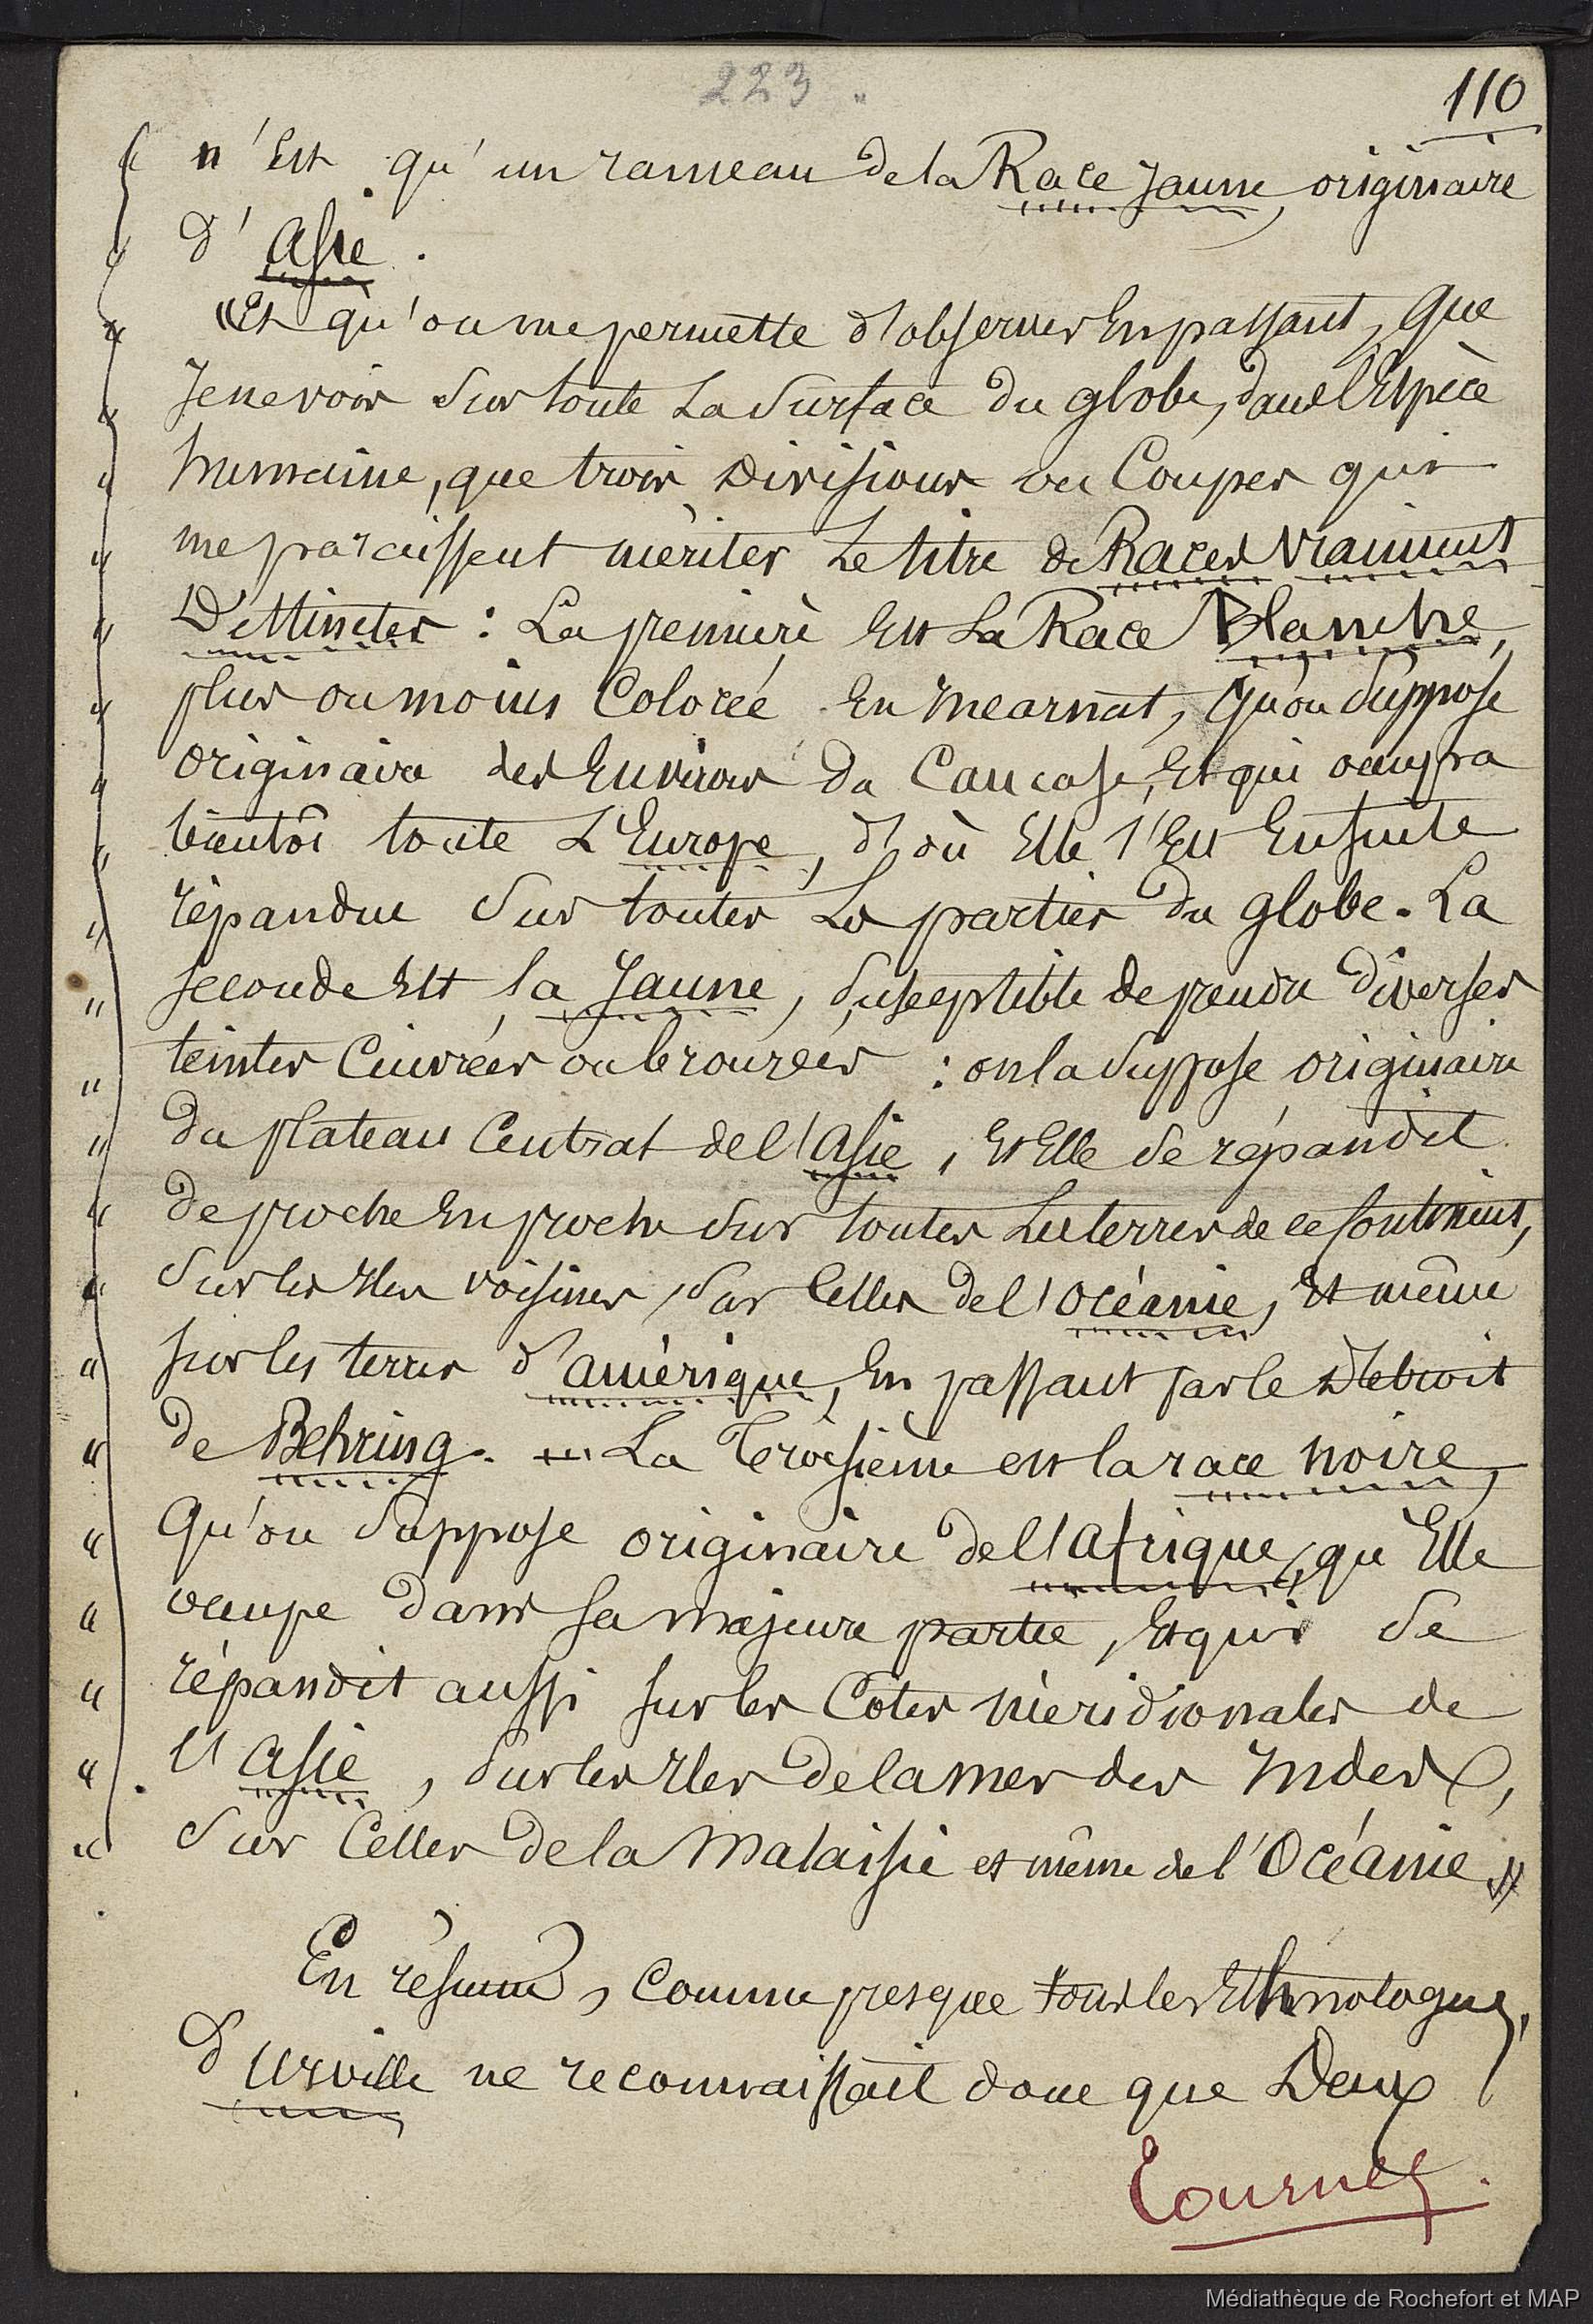 223 "
110
" n'Est qu'un rameau de la Race Jaune, originaire
" d'Asie.
" "Et qu'on me permette d'observer En passant, que
" Je ne vois sur toute La Surface du globe, dans l'Espèce
" humaine, que trois Divisions ou Coupes qui
" me paraissent mériter Le titre de Races vraiment
" Distinctes : La première Est La Race Blanche,
" plus ou moins Colorée En Incarnat, qu'on Suppose
" originaire des Environs du Caucase, Et qui occupa
" bientôt toute L'Europe, d'où Elle s'Est Ensuite
" répandue Sur toutes Les parties du globe. La
" seconde Est la Jaune, Susceptible de prendre diverses
" teintes Cuivrées ou bronzées : on la Suppose originaire
" du plateau Central de l'Asie, Et Elle se répandit
" de proche En proche sur toutes Les terres de ce Continent,
" sur les Iles voisines, sur Celles de l'Océanie, Et même
" sur les terres d'amérique, En passant par le Détroit
" de Behring. — La Troisième est la race noire,
" Qu'on Suppose originaire de l'afrique, qu'Elle
" occupe dans sa majeure partie, Et qui se
" répandit aussi sur les Côtes méridionales de
" l'Asie, Sur les Iles de la mer des Indes,
" Sur Celles de la Malaisie et même de l'Océanie »
En résumé, Comme presque tous les Ethnologues,
d'Urville ne reconnaissait donc que Deux
Tournez.
Médiathèque de Rochefort et MAP